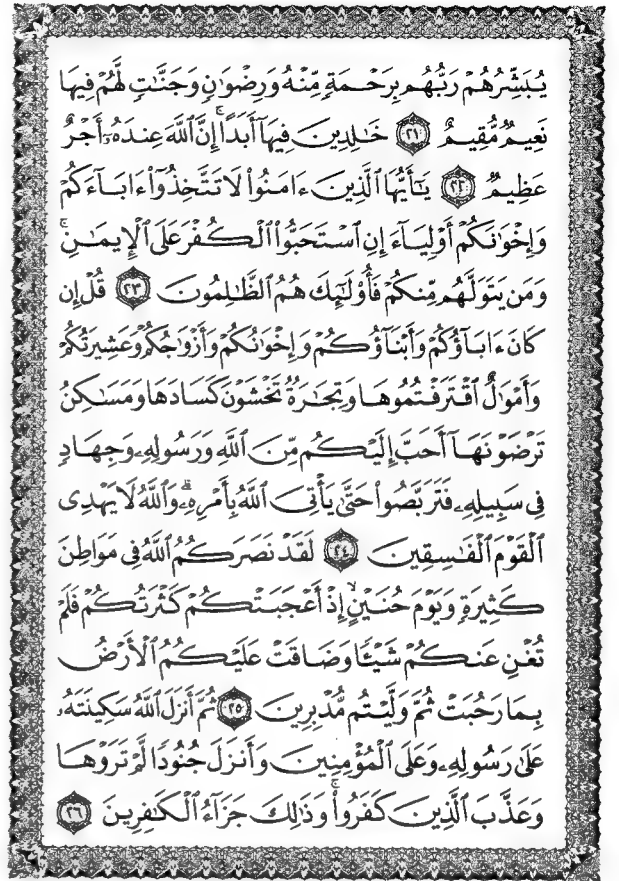 يُبَشِّرُهُمْ رَبُّهُم بِرَحْمَةٍ مِّنْهُ وَرِضْوَٰنٍ وَجَنَّٰتٍ لَّهُمْ فِيهَا
نَعِيمٌ مُّقِيمٌ ٢١ خَٰلِدِينَ فِيهَآ أَبَدًا ۚ إِنَّ ٱللَّهَ عِندَهُۥٓ أَجْرٌ
عَظِيمٌ ٢٢ يَٰٓأَيُّهَا ٱلَّذِينَ ءَامَنُوا۟ لَا تَتَّخِذُوٓا۟ ءَابَآءَكُمْ
وَإِخْوَٰنَكُمْ أَوْلِيَآءَ إِنِ ٱسْتَحَبُّوا۟ ٱلْكُفْرَ عَلَى ٱلْإِيمَٰنِ ۚ
وَمَن يَتَوَلَّهُم مِّنكُمْ فَأُو۟لَٰٓئِكَ هُمُ ٱلظَّٰلِمُونَ ٢٣ قُلْ إِن
كَانَ ءَابَآؤُكُمْ وَأَبْنَآؤُكُمْ وَإِخْوَٰنُكُمْ وَأَزْوَٰجُكُمْ وَعَشِيرَتُكُمْ
وَأَمْوَٰلٌ ٱقْتَرَفْتُمُوهَا وَتِجَٰرَةٌ تَخْشَوْنَ كَسَادَهَا وَمَسَٰكِنُ
تَرْضَوْنَهَآ أَحَبَّ إِلَيْكُم مِّنَ ٱللَّهِ وَرَسُولِهِۦ وَجِهَادٍ
فِى سَبِيلِهِۦ فَتَرَبَّصُوا۟ حَتَّىٰ يَأْتِىَ ٱللَّهُ بِأَمْرِهِۦ ۗ وَٱللَّهُ لَا يَهْدِى
ٱلْقَوْمَ ٱلْفَٰسِقِينَ ٢٤ لَقَدْ نَصَرَكُمُ ٱللَّهُ فِى مَوَاطِنَ
كَثِيرَةٍ وَيَوْمَ حُنَيْنٍ ۙ إِذْ أَعْجَبَتْكُمْ كَثْرَتُكُمْ فَلَمْ
تُغْنِ عَنكُمْ شَيْـًٔا وَضَاقَتْ عَلَيْكُمُ ٱلْأَرْضُ
بِمَا رَحُبَتْ ثُمَّ وَلَّيْتُم مُّدْبِرِينَ ٢٥ ثُمَّ أَنزَلَ ٱللَّهُ سَكِينَتَهُۥ
عَلَىٰ رَسُولِهِۦ وَعَلَى ٱلْمُؤْمِنِينَ وَأَنزَلَ جُنُودًا لَّمْ تَرَوْهَا
وَعَذَّبَ ٱلَّذِينَ كَفَرُوا۟ ۚ وَذَٰلِكَ جَزَآءُ ٱلْكَٰفِرِينَ ٢٦